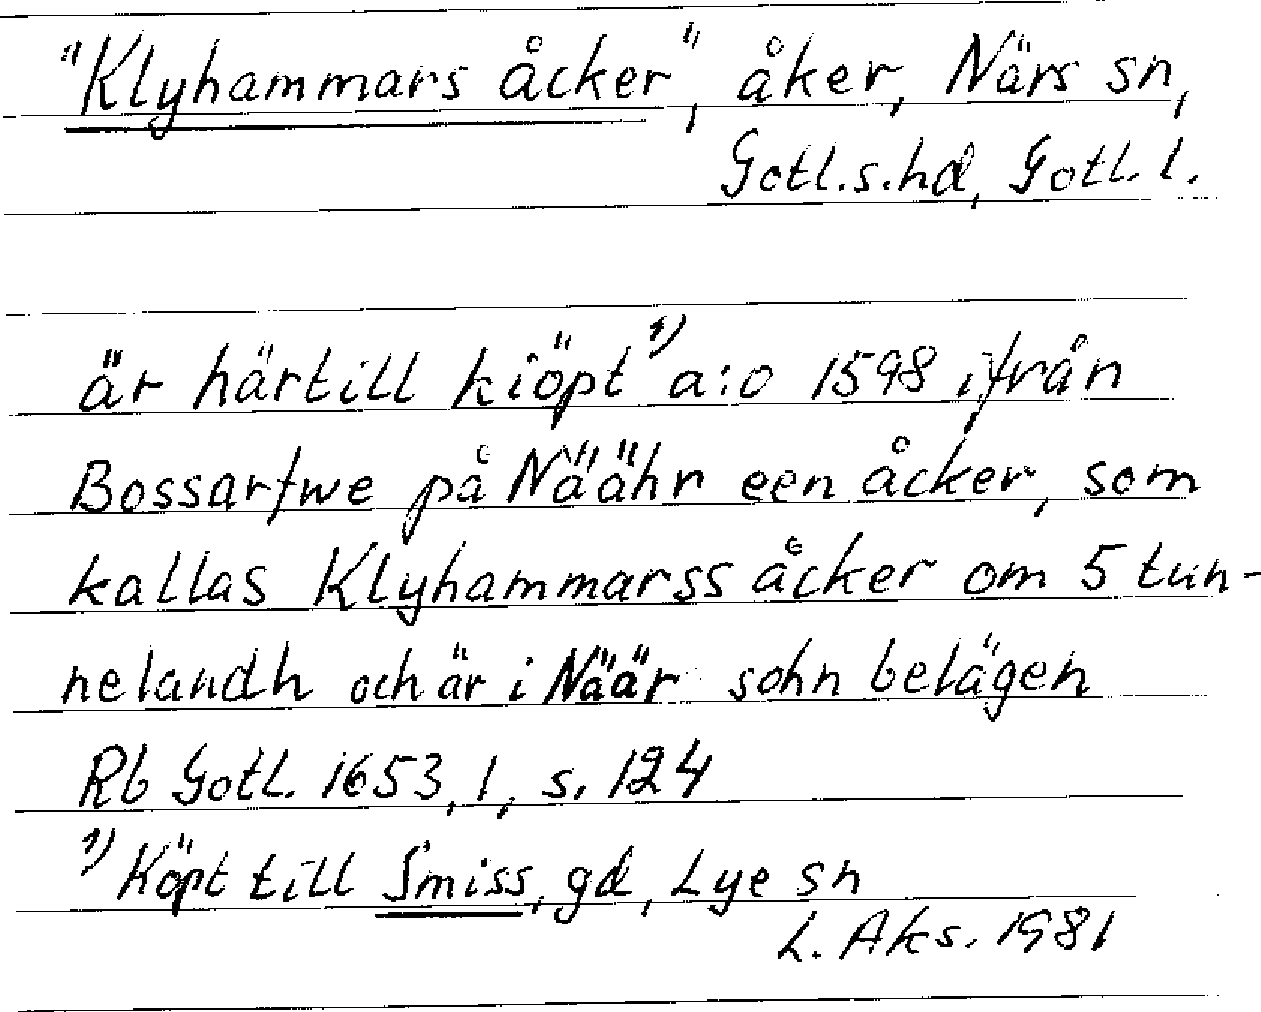 "Klyhammars åcker", åker, Närs sn,
Gotl.s.hd, Gotl. l.
är härtill kiöpt¹⁾ a:o 1598 ifrån
Bossarfwe på Näähr een åcker, som
kallas Klyhammarss åcker om 5 tun-
nelandh och är i Näär sohn belägen
Rb Gotl. 1653, 1, s. 124
¹⁾ Köpt till Smiss, gd, Lye sn
L. Aks. 1981